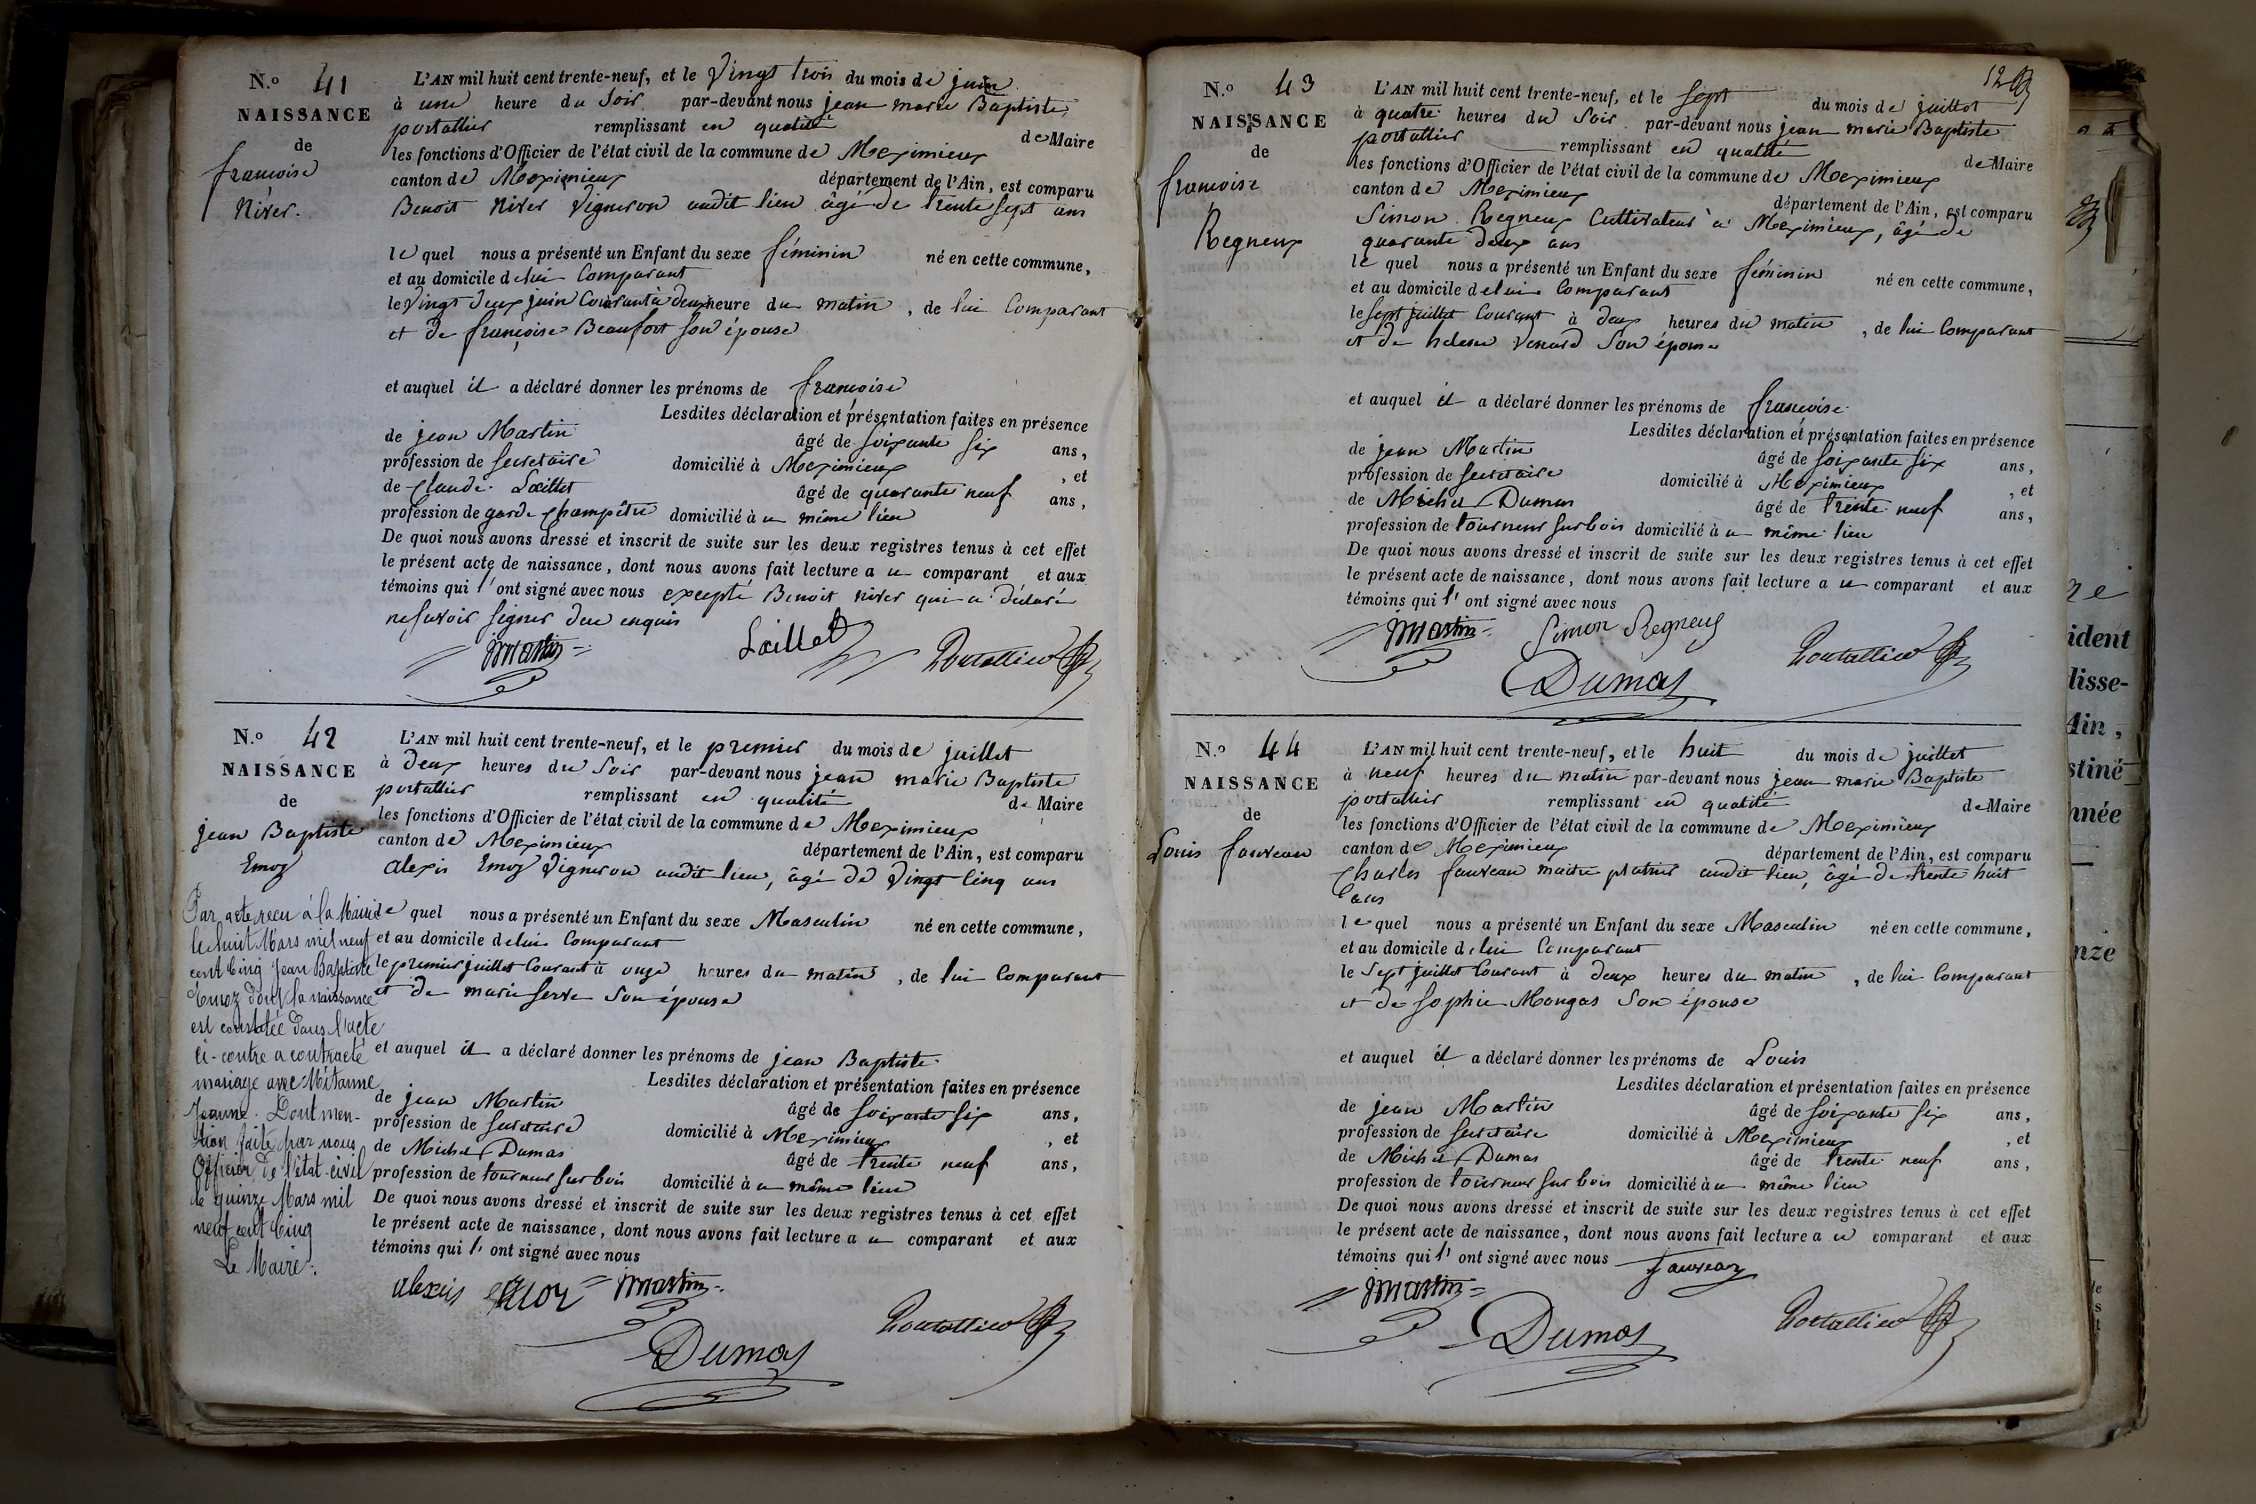 N.º 41
NAISSANCE
de
francoise
Niver.
L'AN mil huit cent trente-neuf, et le Vingt trois du mois de juin
à une heure du Soir par-devant nous jean marie Baptiste
portallier remplissant en qualité de Maire
les fonctions d'Officier de l'état civil de la commune de Meximieux
canton de Meximieux département de l'Ain, est comparu
Benoit Niver Vigneron audit lieu âgé de trente sept ans
le quel nous a présenté un Enfant du sexe féminin né en cette commune,
et au domicile de lui Comparant
le Vingt deux juin Courant à deux heure du matin, de lui Comparant
et de françoise Beaufort son épouse
et auquel il a déclaré donner les prénoms de francoise
Lesdites déclaration et présentation faites en présence
de jean Martin âgé de soixante six ans,
profession de secretaire domicilié à Meximieux, et
de Claude Loeillet âgé de quarante neuf ans,
profession de garde champêtre domicilié à u même lieu
De quoi nous avons dressé et inscrit de suite sur les deux registres tenus à cet effet
le présent acte de naissance, dont nous avons fait lecture a u comparant et aux
témoins qui l'ont signé avec nous excepté Benoit Niver qui a déclaré
ne savoir signer de ce enquis
JMartin Loeillet Portallier
N.º 42
NAISSANCE
de
jean Baptiste
Emoz
Par acte reçu à la Mairie
le huit Mars mil neuf
cent Cinq Jean Baptiste
Emoz dont la naissance
est constatée dans l'acte
ci-contre a contracté
mariage avec Mitanne
Jeanne. Dont men-
tion faite par nous
Officier de l'état-civil
le quinze Mars mil
neuf cent Cinq
Le Maire.
L'AN mil huit cent trente-neuf, et le premier du mois de juillet
à deux heures du Soir par-devant nous jean marie Baptiste
portallier remplissant en qualité de Maire
les fonctions d'Officier de l'état civil de la commune de Meximieux
canton de Meximieux département de l'Ain, est comparu
alexis Emoz Vigneron audit lieu, âgé de Vingt Cinq ans
le quel nous a présenté un Enfant du sexe Masculin né en cette commune,
et au domicile de lui Comparant
le premier juillet Courant à onze heures du matin, de lui Comparant
et de marie serve son épouse
et auquel il a déclaré donner les prénoms de jean Baptiste
Lesdites déclaration et présentation faites en présence
de jean Martin âgé de soixante six ans,
profession de secretaire domicilié à Meximieux, et
de Michel Dumas âgé de trente neuf ans,
profession de tourneur sur bois domicilié à u même lieu
De quoi nous avons dressé et inscrit de suite sur les deux registres tenus à cet effet
le présent acte de naissance, dont nous avons fait lecture a u comparant et aux
témoins qui l'ont signé avec nous
alexis emoz JMartin
Dumas Portallier
12
N.º 43
NAISSANCE
de
francoise
Regneux
L'AN mil huit cent trente-neuf, et le sept du mois de juillet
à quatre heures du Soir par-devant nous jean marie Baptiste
portallier remplissant en qualité de Maire
les fonctions d'Officier de l'état civil de la commune de Meximieux
canton de Meximieux département de l'Ain, est comparu
Simon Regneux Cultivateur à Meximieux, âgé de
quarante deux ans
le quel nous a présenté un Enfant du sexe féminin né en cette commune,
et au domicile de lui Comparant
le sept juillet Courant à deux heures du matin, de lui Comparant
et de helene Venard son épouse
et auquel il a déclaré donner les prénoms de francoise
Lesdites déclaration et présentation faites en présence
de jean Martin âgé de soixante six ans,
profession de secretaire domicilié à Meximieux, et
de Michel Dumas âgé de trente neuf ans,
profession de tourneur sur bois domicilié à u même lieu
De quoi nous avons dressé et inscrit de suite sur les deux registres tenus à cet effet
le présent acte de naissance, dont nous avons fait lecture a u comparant et aux
témoins qui l'ont signé avec nous
JMartin Simon Regneux
Dumas Portallier
N.º 44
NAISSANCE
de
Louis fauveau
L'AN mil huit cent trente-neuf, et le huit du mois de juillet
à neuf heures du matin par-devant nous jean marie Baptiste
portallier remplissant en qualité de Maire
les fonctions d'Officier de l'état civil de la commune de Meximieux
canton de Meximieux département de l'Ain, est comparu
Charles fauveau maitre platrier audit lieu, âgé de trente huit
ans
le quel nous a présenté un Enfant du sexe Masculin né en cette commune,
et au domicile de lui Comparant
le Sept juillet Courant à deux heures du matin, de lui Comparant
et de sophie Mongas son épouse
et auquel il a déclaré donner les prénoms de Louis
Lesdites déclaration et présentation faites en présence
de jean Martin âgé de soixante six ans,
profession de secretaire domicilié à Meximieux, et
de Michel Dumas âgé de trente neuf ans,
profession de tourneur sur bois domicilié à u même lieu
De quoi nous avons dressé et inscrit de suite sur les deux registres tenus à cet effet
le présent acte de naissance, dont nous avons fait lecture a u comparant et aux
témoins qui l'ont signé avec nous Fauveau
JMartin
Dumas Portallier
ident
lisse-
Ain,
stiné
nnée
nze